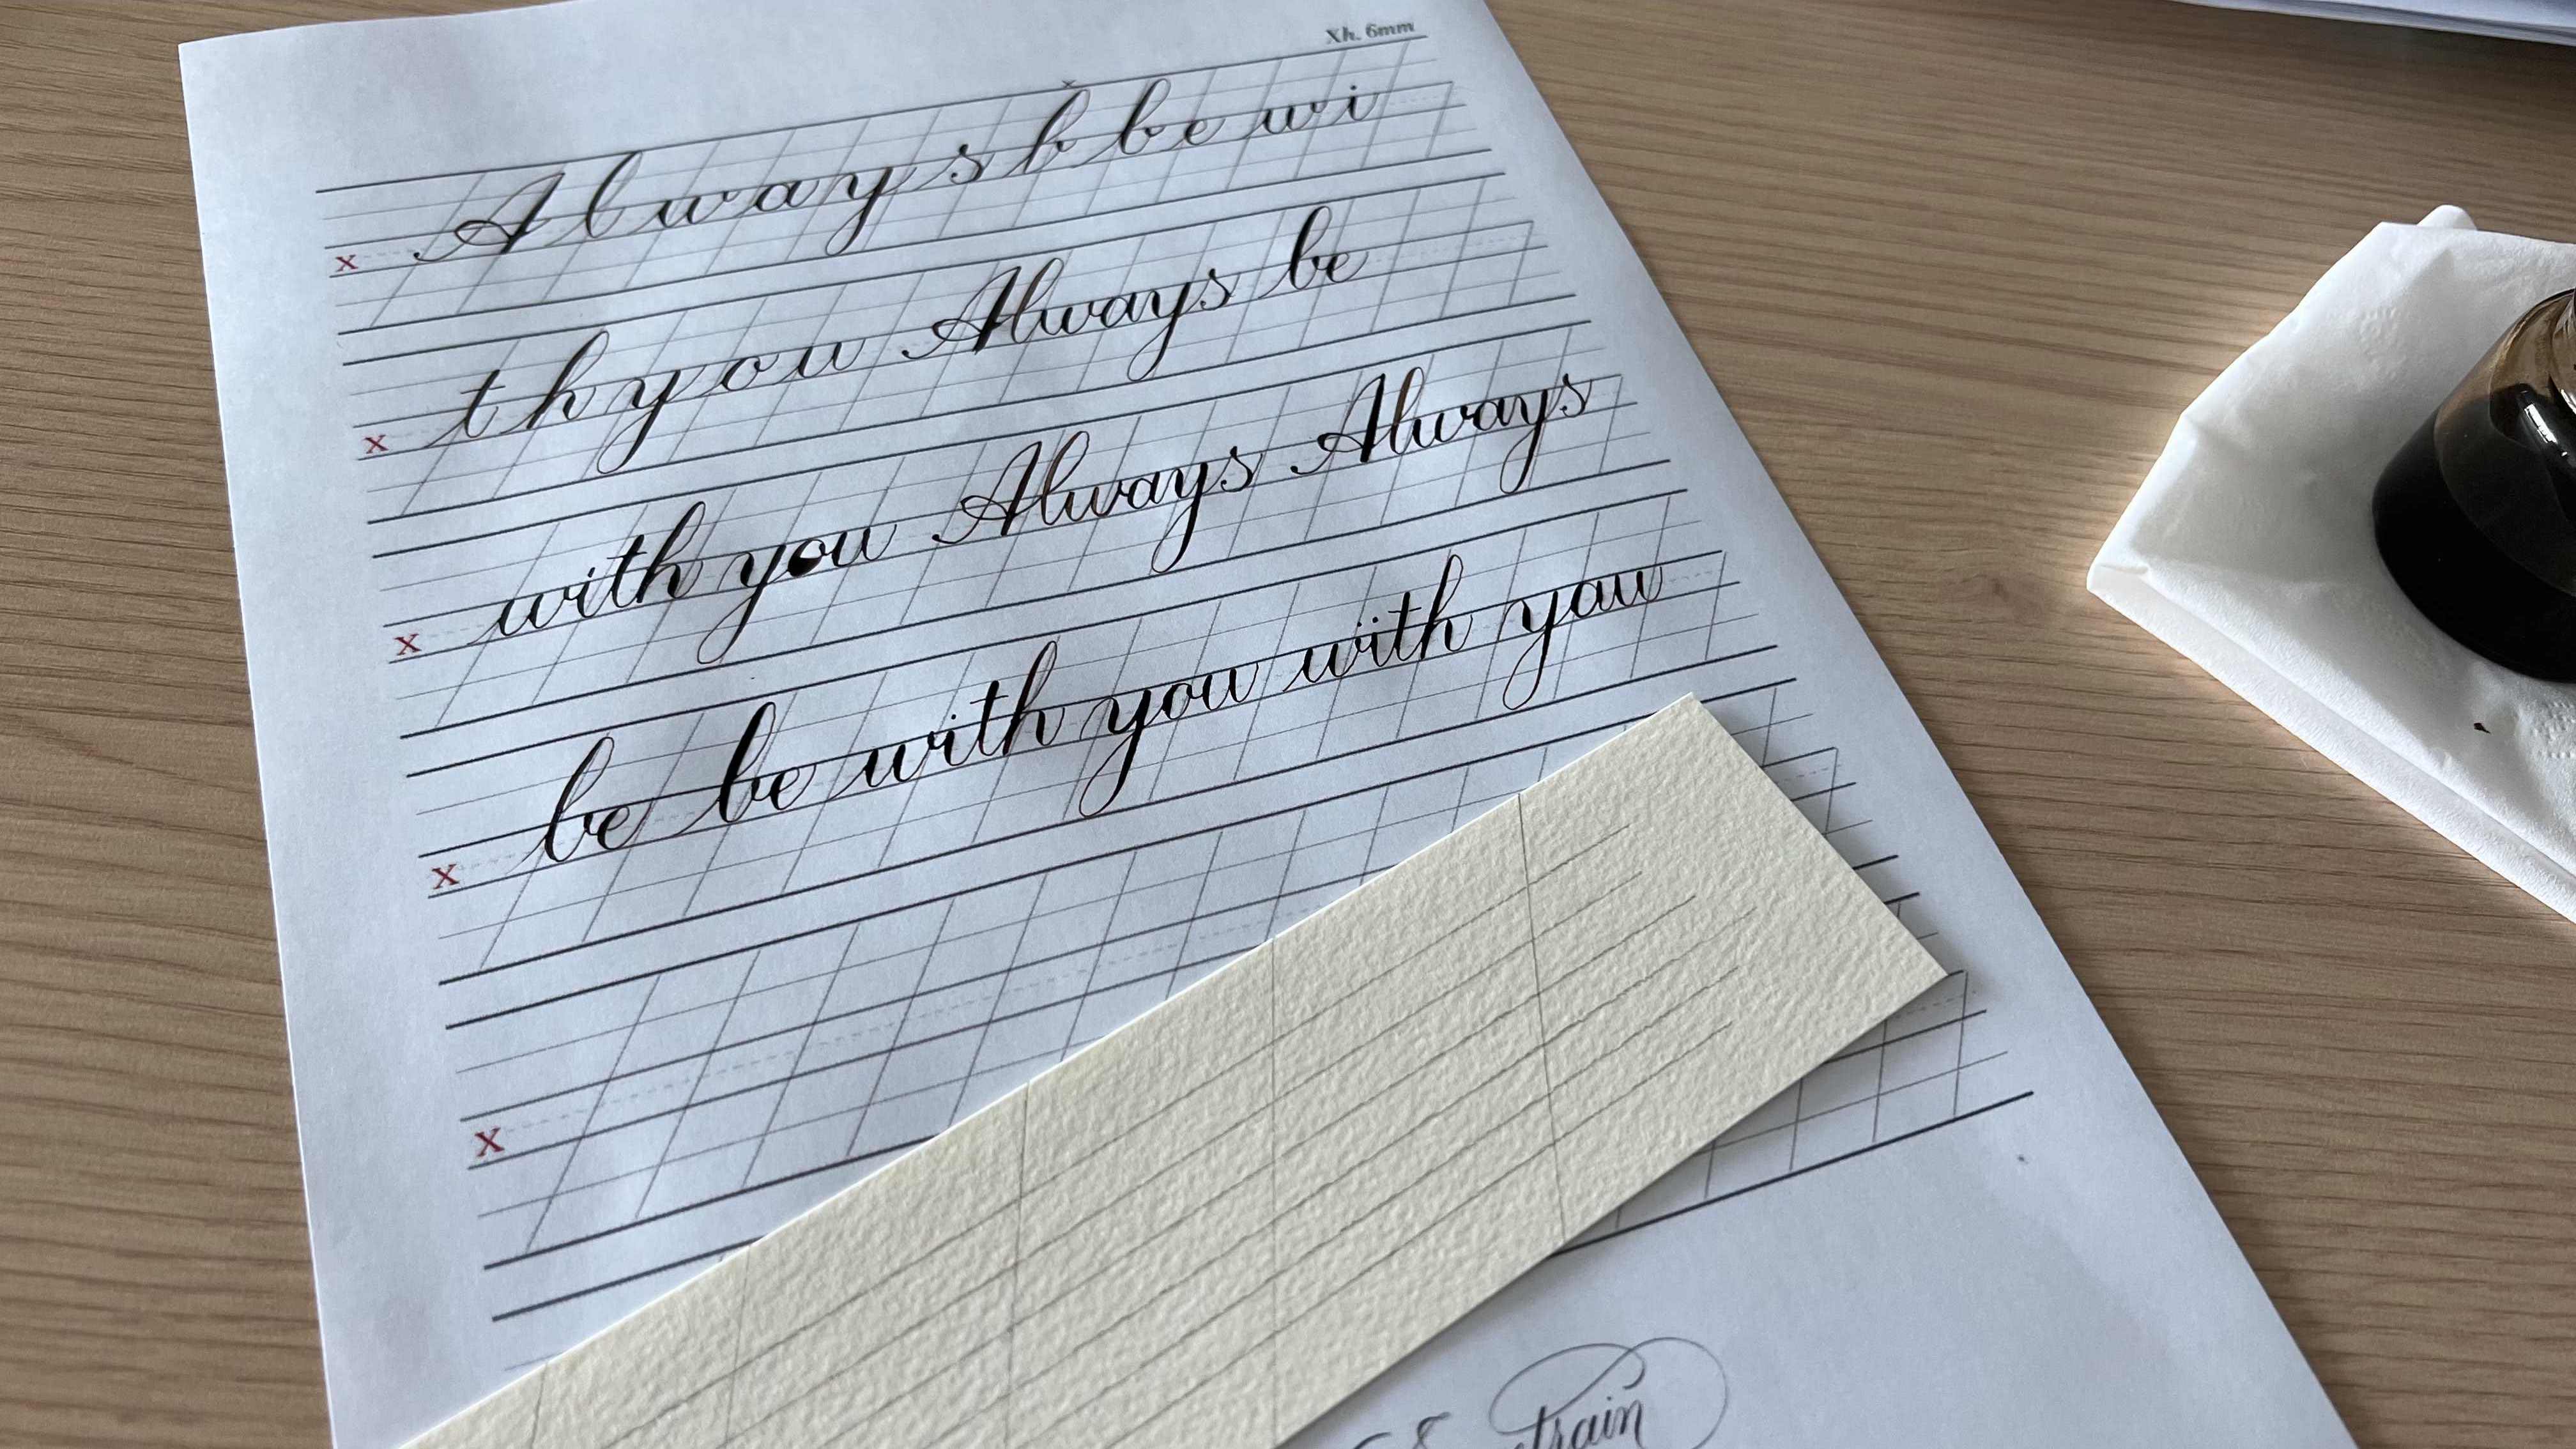 Xh. 6mm
A l w a y s b be wi
x
t h y o u Always be
x
with you Always Always
x
be be with you with you
x
x
train